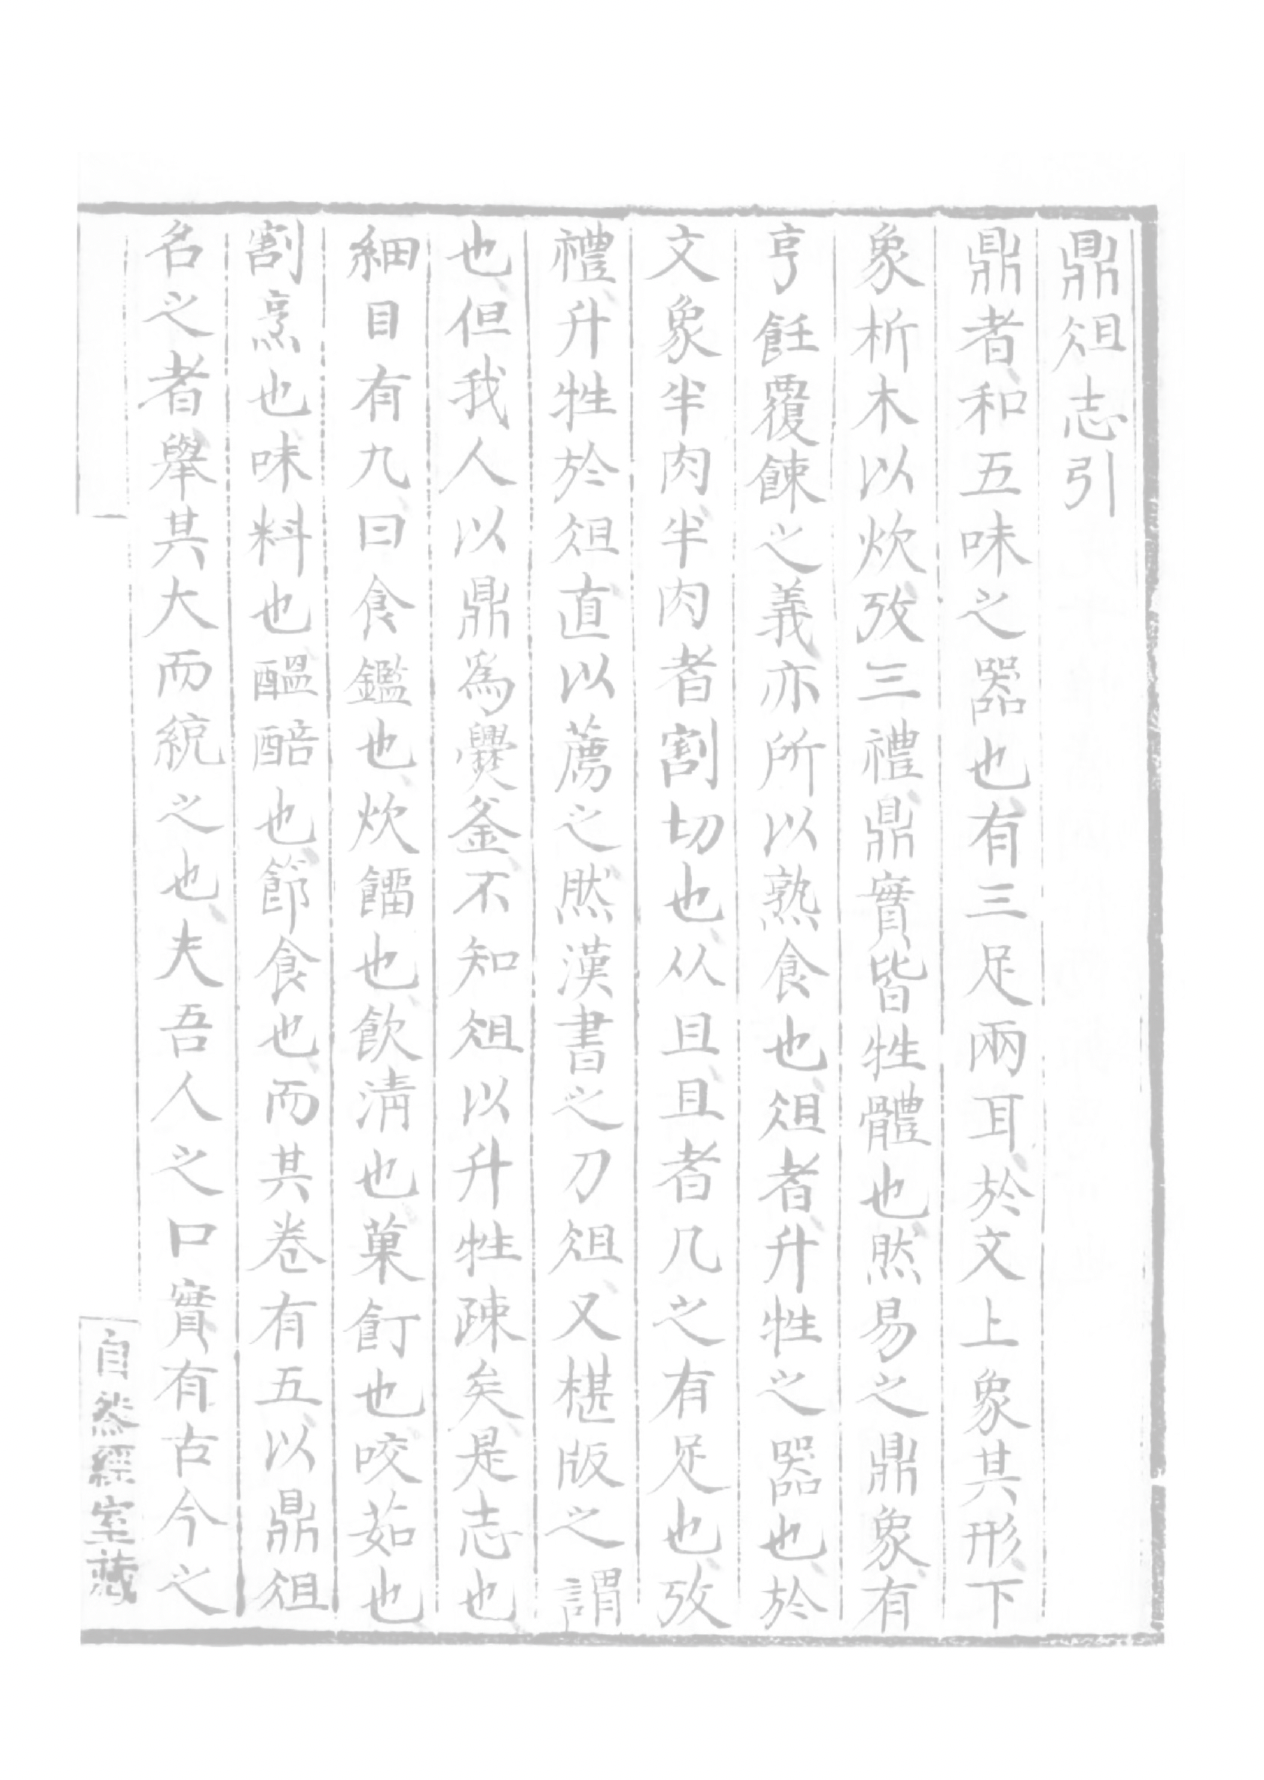 鼎俎志引
鼎者和五味之器也有三足兩耳於文上象其形下
象析木以炊攷三禮鼎實皆牲體也然易之鼎象有
亨飪覆餗之義亦所以熟食也俎者升牲之器也於
文象半肉半肉者割切也从且且者几之有足也攷
禮升牲於俎直以薦之然漢書之刀俎又椹版之謂
也但我人以鼎爲爨釜不知俎以升牲疎矣是志也
細目有九曰食鑑也炊餾也飲淸也菓飣也咬茹也
割烹也味料也醞醅也節食也而其卷有五以鼎俎
名之者舉其大而統之也夫吾人之口實有古今之
自然經室藏